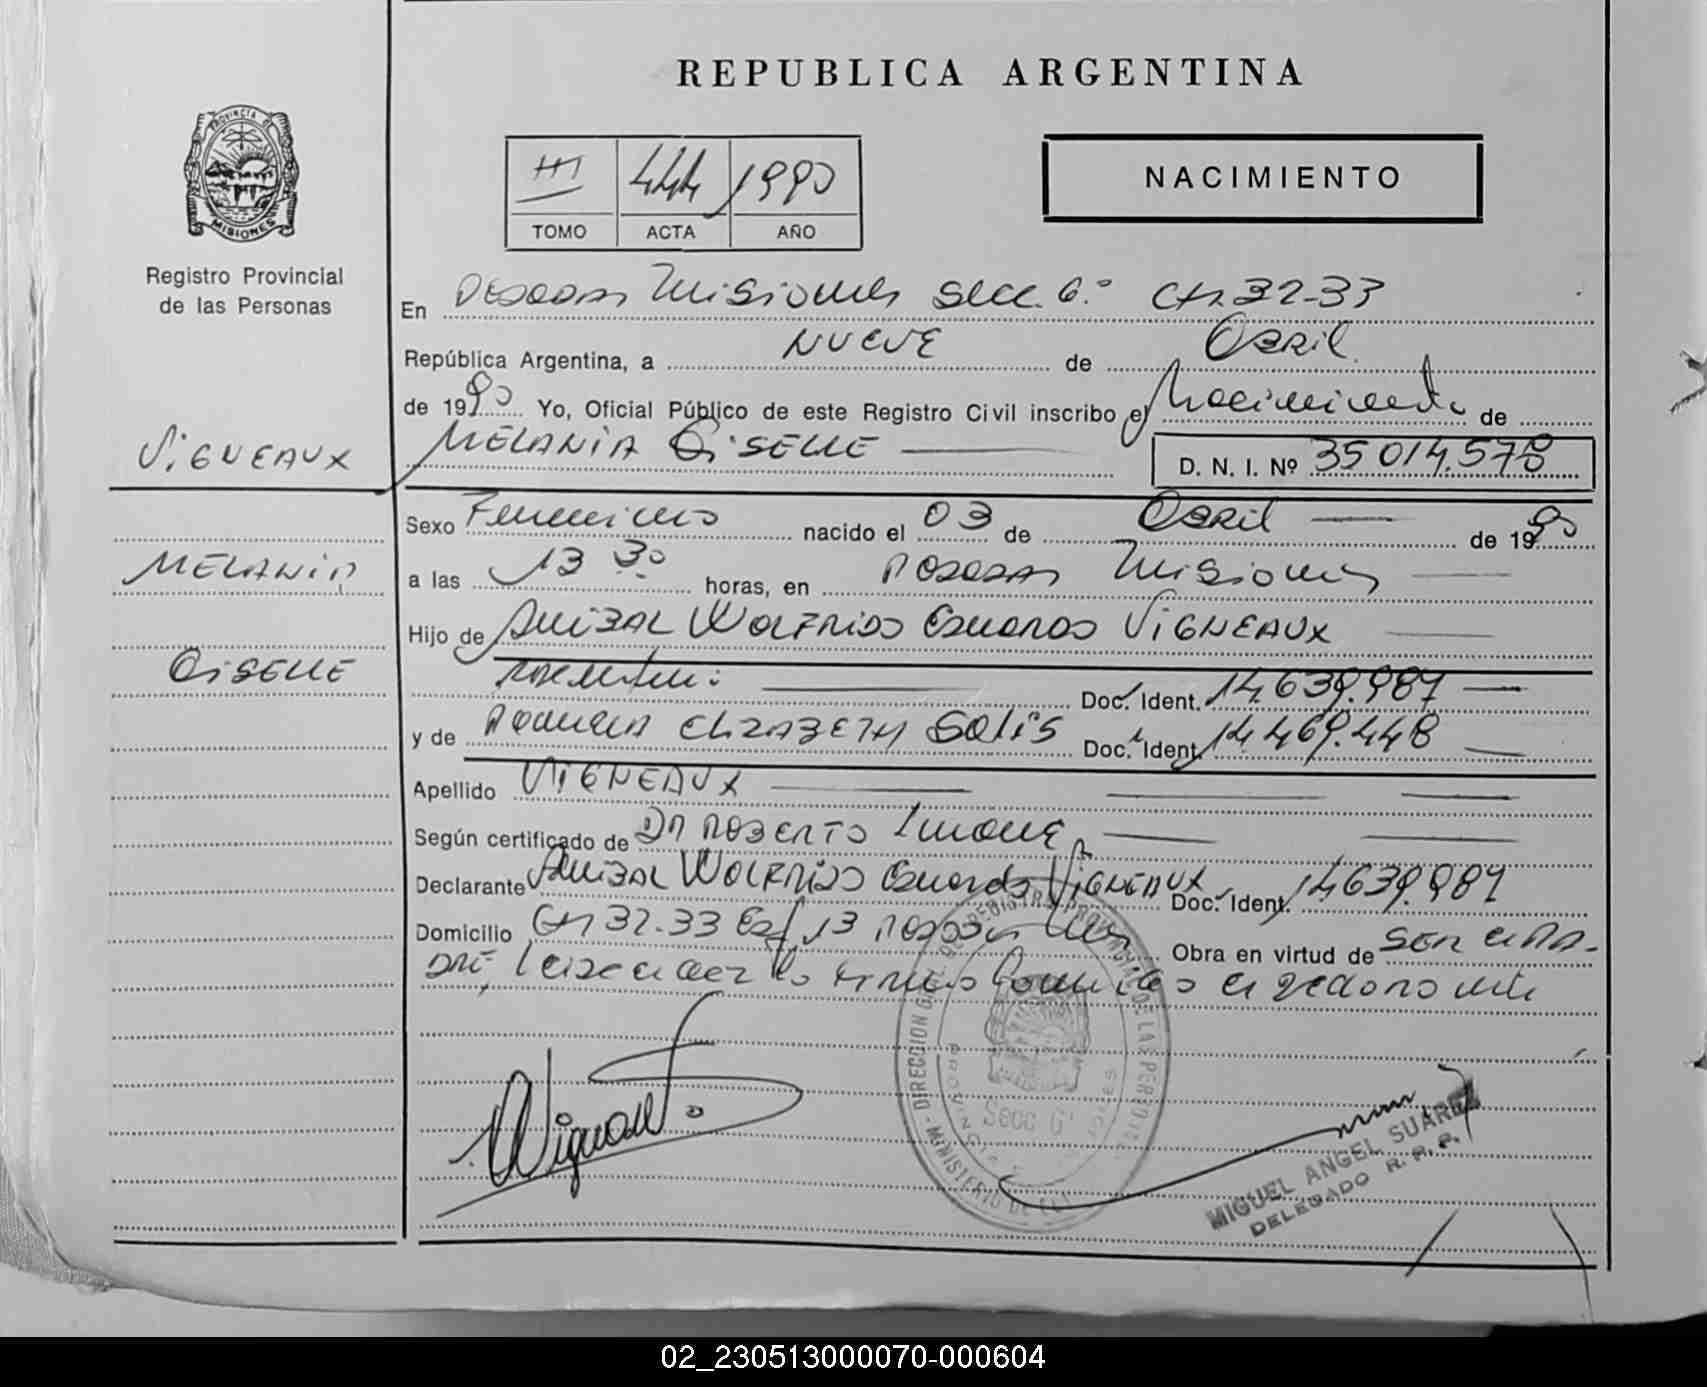 REPUBLICA ARGENTINA
PROVINCIA DE
MISIONES
Registro Provincial
de las Personas
III 444 1990
TOMO ACTA AÑO
NACIMIENTO
En Posadas Misiones Secc. 6.º Ch. 32-33
República Argentina, a NUEVE de Abril
de 1990 Yo, Oficial Público de este Registro Civil inscribo el Nacimiento de
VIGNEAUX
MELANIA GISELLE
D. N. I. Nº 35 014.578
Sexo Femenino nacido el 03 de Abril de 1990
MELANIA
a las 13 30 horas, en Posadas Misiones
Hijo de Anibal Wolfrido Eduardo VIGNEAUX
GISELLE
Argentino: Doc. Ident. 14.639.987
y de Ramona Elizabeth Solis Doc. Ident. 14.469.448
Apellido VIGNEAUX
Según certificado de Dr Roberto
Declarante Anibal Wolfrido Eduardo VIGNEAUX Doc. Ident. 14639.987
Domicilio Ch 32-33 13 Posadas Mnes Obra en virtud de SER el PA-
DRE, leida el acta la firma conmigo el declarante
DIRECCION REGISTRO PROVINCIAL DE LAS PERSONAS
MINISTERIO DE
PROVINCIA
Secc 6º
MIGUEL ANGEL SUAREZ
DELEGADO R. P. P.
02_230513000070-000604